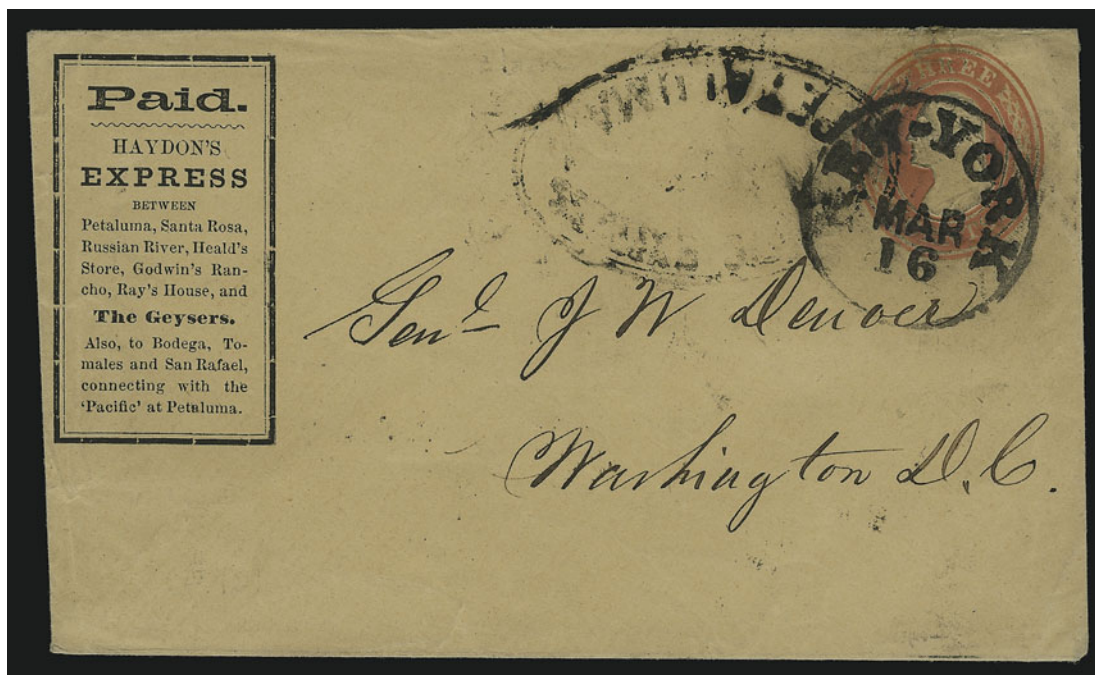 Paid.
HAYDON'S
EXPRESS
BETWEEN
Petaluma, Santa Rosa,
Russian River, Heald's
Store, Godwin's Ran-
cho, Ray's House, and
The Geysers.
Also, to Bodega, To-
males and San Rafael,
connecting with the
'Pacific' at Petaluma.
THREE
NEW-YORK
MAR
16
Genl J W Denver
Washington D. C.